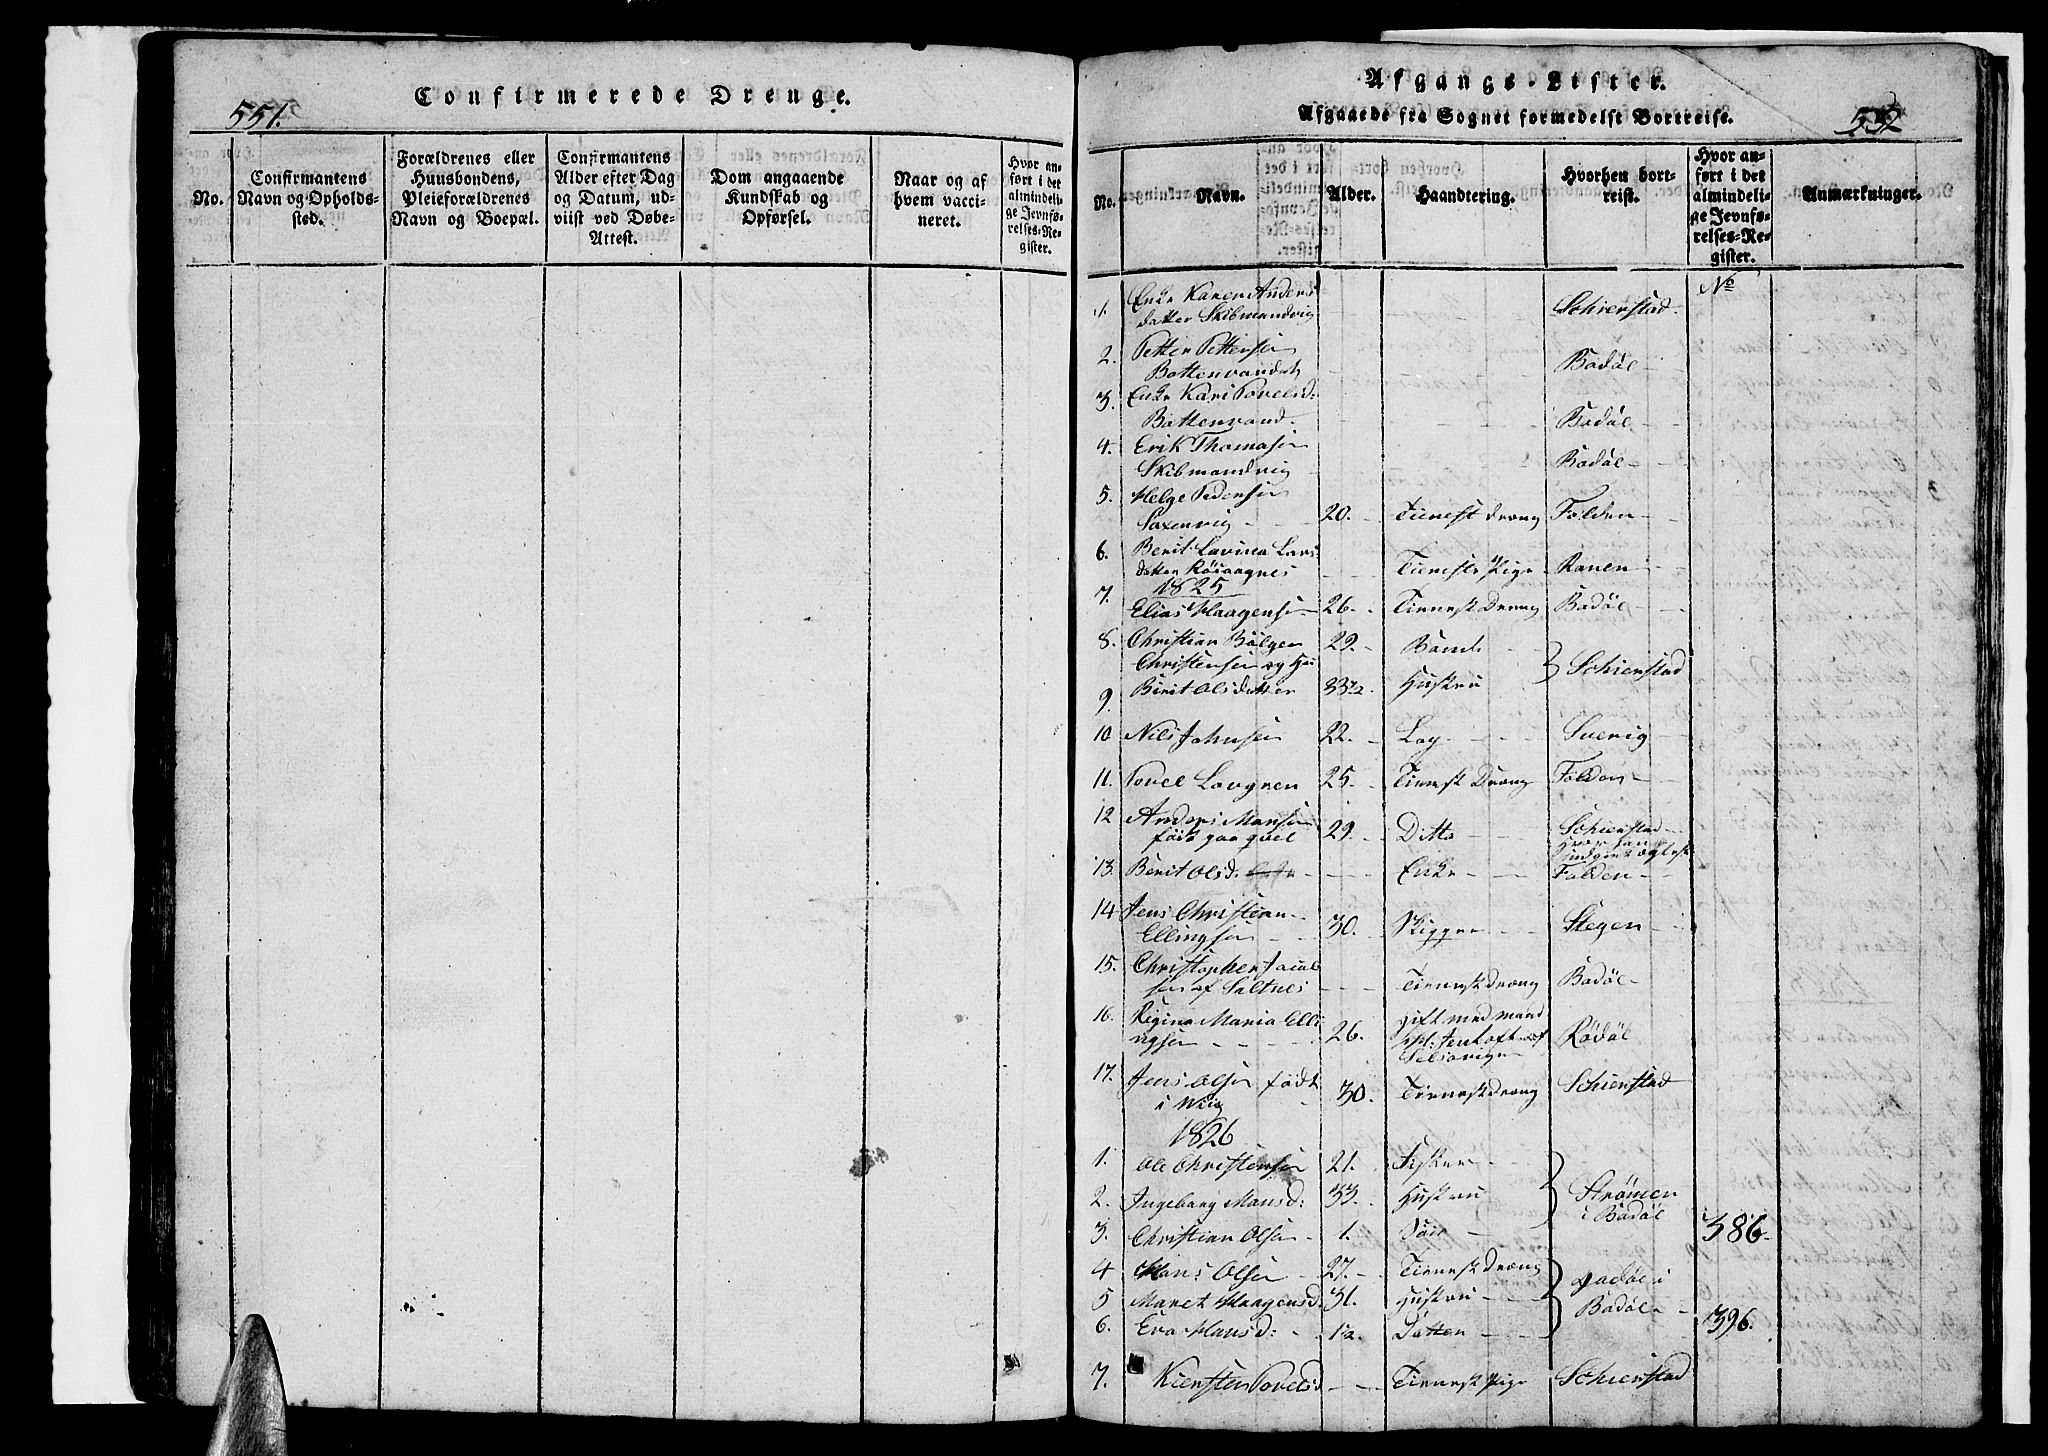 Confirmerede Drenge.
551.
No.
Confirmantens
Navn og Opholds-
sted.
Forældrenes eller
Huusbondens,
Pleieforældrenes
Navn og Boepæl.
Confirmantens
Alder efter Dag
og Datum, ud-
viist ved Døbe-
Attest.
Dom angaaende
Kundskab og
Opførsel.
Naar og af
hvem vacci-
neret.
Hvor an-
ført i det
almindeli-
ge Jevnfø-
relses-Re-
gister.
Afgangs-Lister.
Afgaaede fra Sognet formedelst Bortreise.
552
No.
Navn.
Alder.
Haandtering.
Hvorhen bort-
reist.
Hvor an-
ført i det
almindeli-
ge Jevnfø-
relses-Re-
gister.
Anmærkninger.
No
1. Enke Karen Anders
datter Skibmandvig Schierstad
2. Petter Pettersen
Bottenvandet Bodöe
3. Enke Kari Povelsd:
Bottenvand Bodöe
4. Erik Thomasen
Skibmandvig Bodöe
5. Helge Pedersen
Saxenvig 20. Tienest dræng Folden
6. Berit Lavina Lars
datter Rösaagnes Tieneste Pige Ranen
1825
7. Elias Haagensen 26. Tienest Dreng Bodöe
8. Christian Bölgen 29. Bonde
Christensen og Hu
9. Berit Olsdatter 33½. Hustru } Schierstad
10 Nils Johnsen 22. Lap Sverig
11. Povel Lovgren 25. Tienest Dræng Folden
12 Anders Mansen
föd paa qvel 29. Ditto Schierstad
13. Berit Olsd: Enke Folden
14 Jens Christian
Ellingsen 30. Skipper Stegen
15. Christopher Jacob
sen af Saltnes Tienest dræng Bodöe
16. Regina Maria Elli
ngsen 26. gift med mand Rödöe
17. Jens Olsen födt
i Wiig 30. Tienest dræng Schierstad
1826
1. Ole Christensen 21. Fisker
2. Ingeborg Mansd: 33. Hustru } Strömen
i Bodöe
3. Christian Olsen 1. Sön 386.
4 Hans Olsen 27. Tienest Dræng
5 Maret Haagensd: 31. Hustru } i
Bodöe
6. Eva Hansd: 1½. Datter 396.
7. Kiersten Povelsd Tienest Pige Schierstad